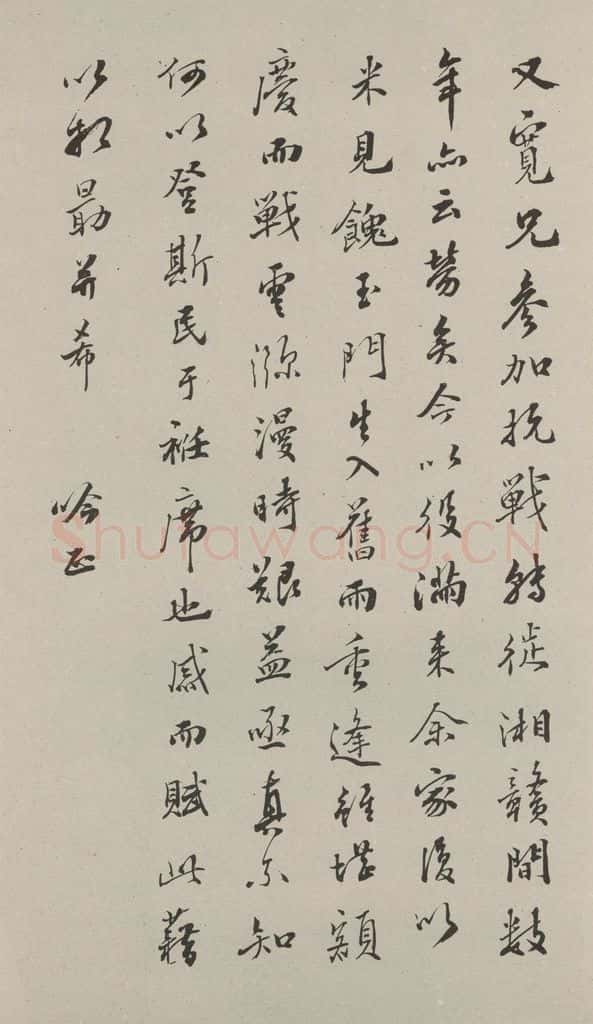 又寬兄參加抗戰轉徙湘贛間數
年亦云勞矣今以役滿来余家復以
米見餽玉門生入舊雨重逢雖堪額
慶而戰雲瀰漫時艱益亟真不知
何以登斯民于袵席也感而賦此藉
以相勗并希
吟正
Shufawang.CN